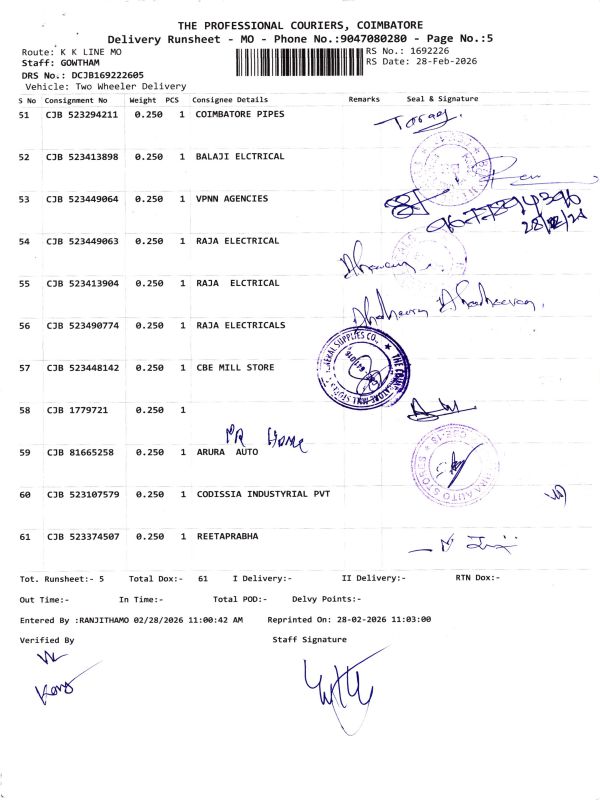 THE PROFESSIONAL COURIERS, COIMBATORE
Delivery Runsheet - MO - Phone No.:9047080280 - Page No.:5
Route: K K LINE MO
RS No.: 1692226
Staff: GOWTHAM
RS Date: 28-Feb-2026
DRS No.: DCJB169222605
Vehicle: Two Wheeler Delivery
S No Consignment No Weight PCS Consignee Details Remarks Seal & Signature
51 CJB 523294211 0.250 1 COIMBATORE PIPES
52 CJB 523413898 0.250 1 BALAJI ELCTRICAL
53 CJB 523449064 0.250 1 VPNN AGENCIES
54 CJB 523449063 0.250 1 RAJA ELECTRICAL
55 CJB 523413904 0.250 1 RAJA ELCTRICAL
56 CJB 523490774 0.250 1 RAJA ELECTRICALS
57 CJB 523448142 0.250 1 CBE MILL STORE
58 CJB 1779721 0.250 1
59 CJB 81665258 0.250 1 ARURA AUTO
60 CJB 523107579 0.250 1 CODISSIA INDUSTYRIAL PVT
61 CJB 523374507 0.250 1 REETAPRABHA
Tot. Runsheet:- 5 Total Dox:- 61 I Delivery:- II Delivery:- RTN Dox:-
Out Time:- In Time:- Total POD:- Delvy Points:-
Entered By :RANJITHAMO 02/28/2026 11:00:42 AM Reprinted On: 28-02-2026 11:03:00
Verified By Staff Signature